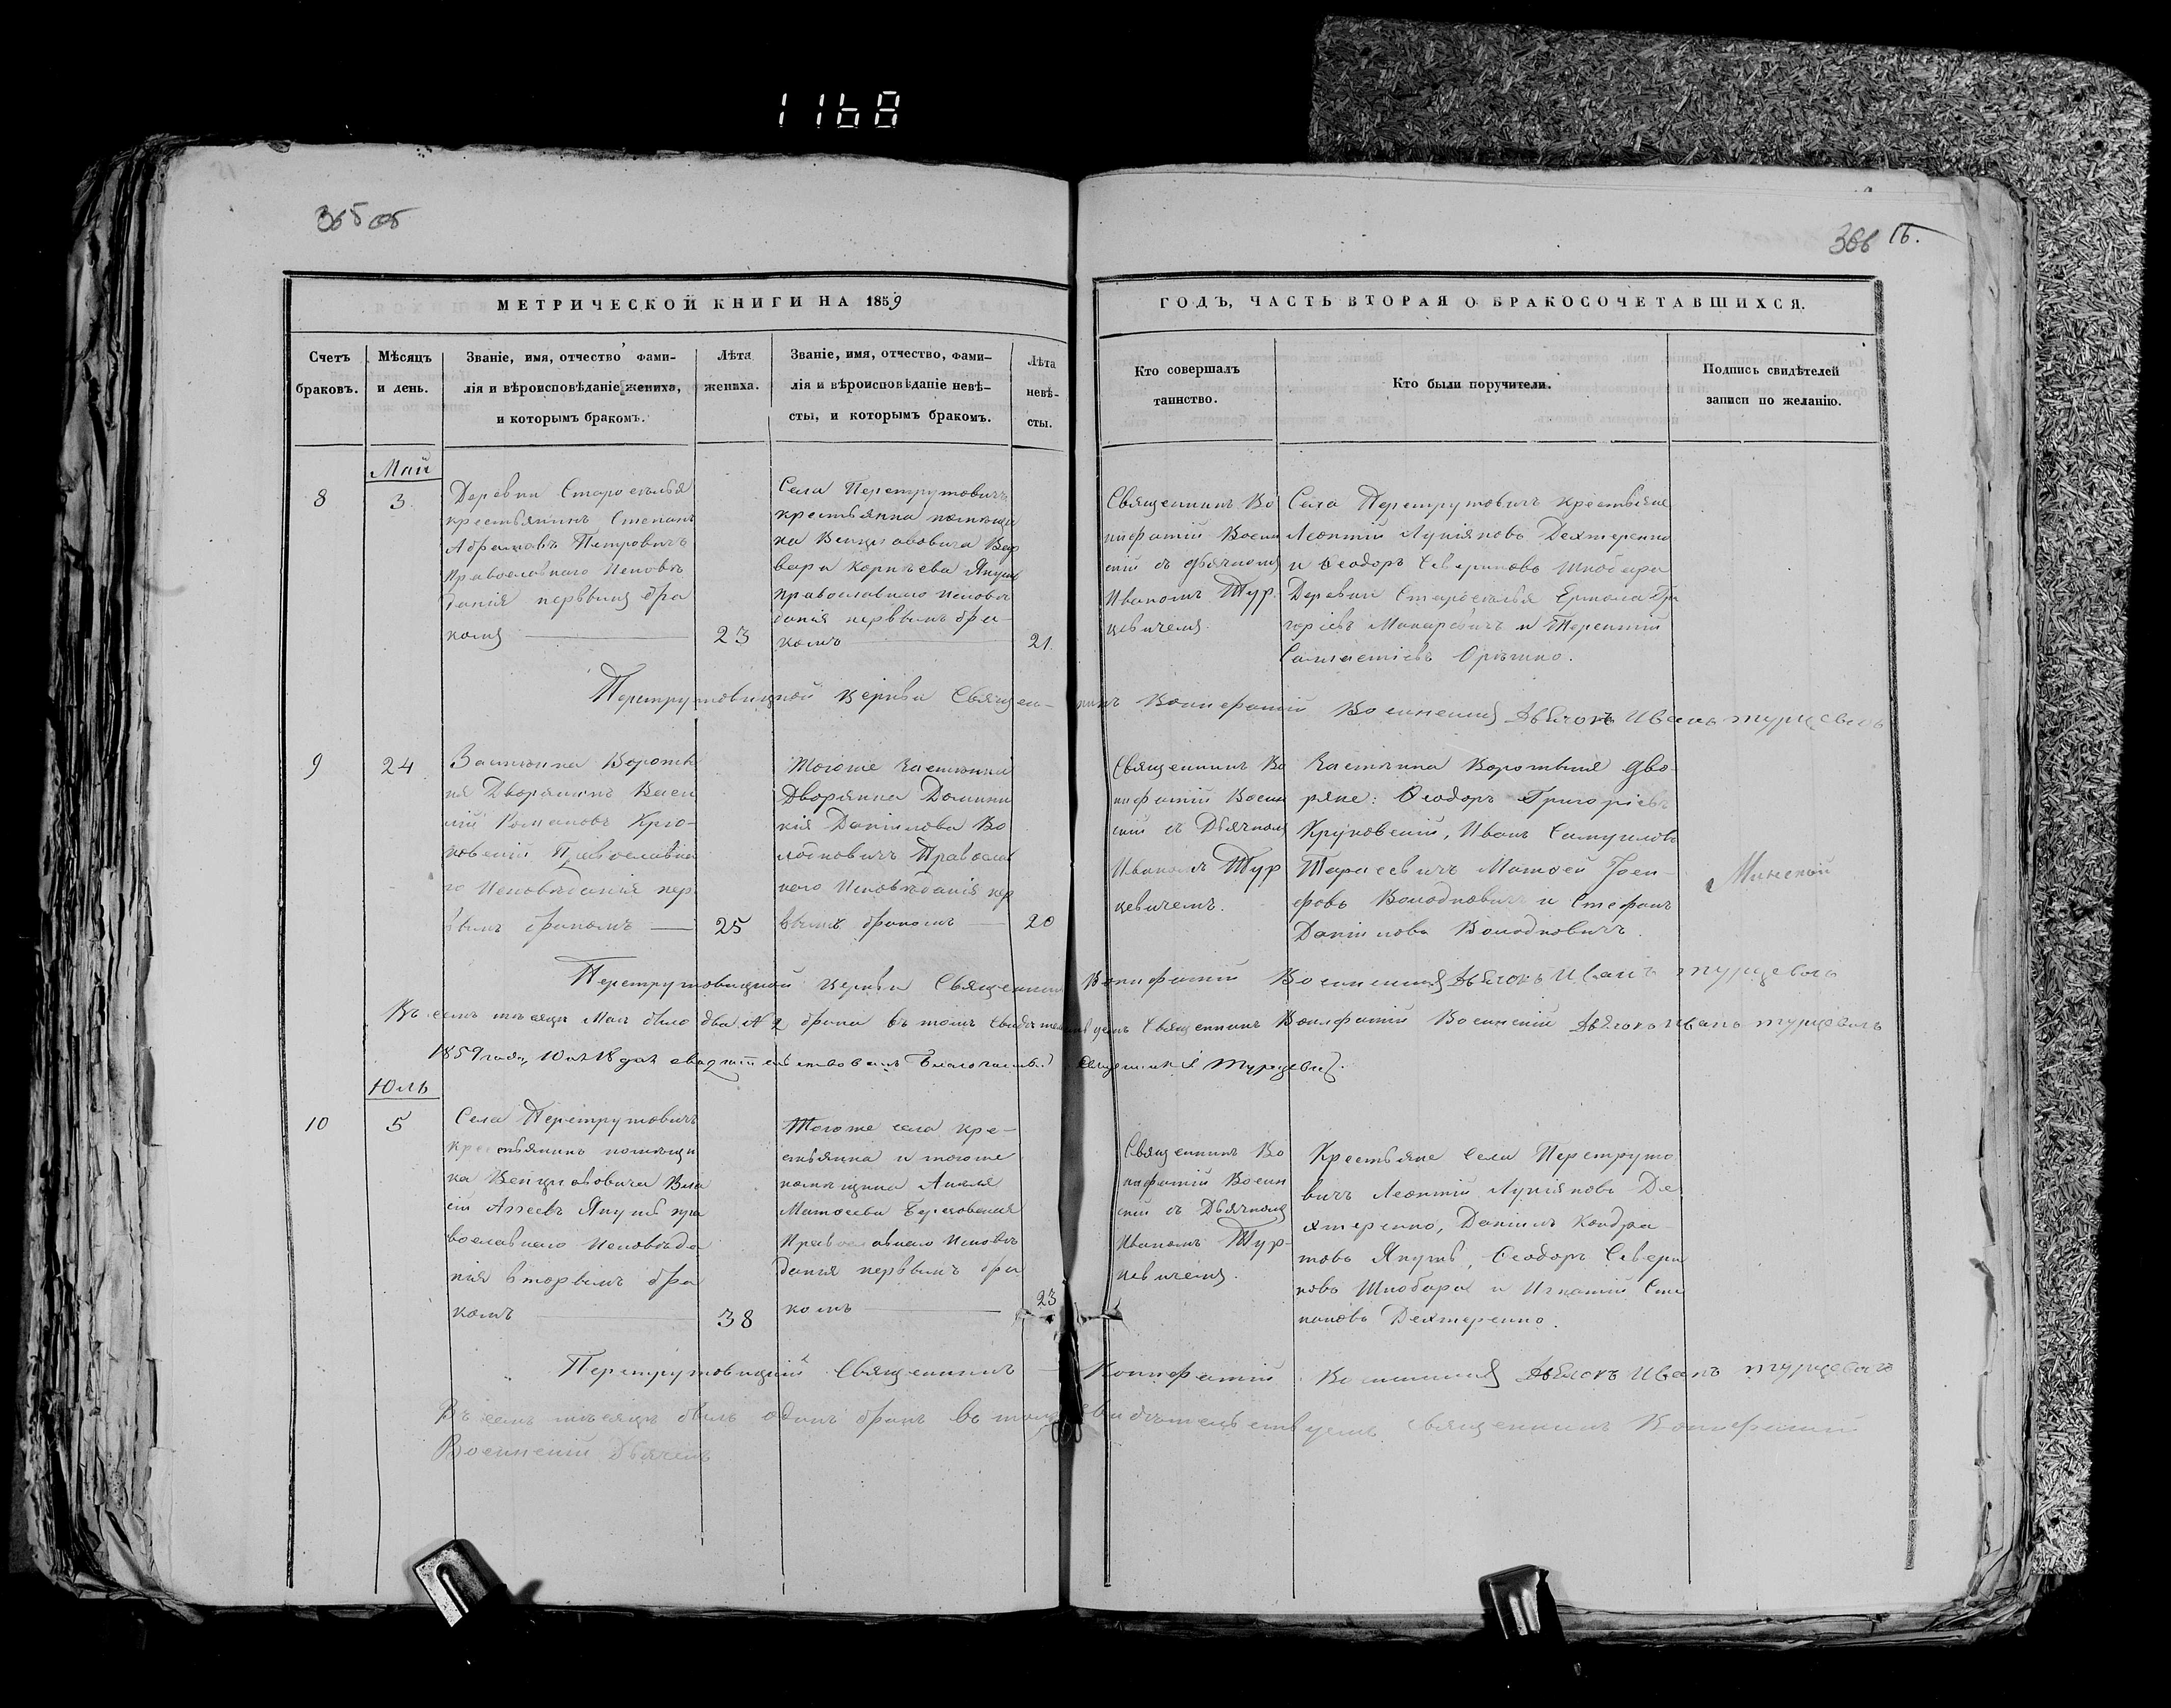 1168
365 об
366 16.
МЕТРИЧЕСКОЙ КНИГИ НА 1859
ГОДЪ, ЧАСТЬ ВТОРАЯ О БРАКОСОЧЕТАВШИХСЯ.
Счетъ
браковъ.
Мѣсяцъ
и день.
Званіе, имя, отчество фами-
лія и вѣроисповѣданіе жениха,
и которымъ бракомъ.
Лѣта
жениха.
Званіе, имя, отчество, фами-
лія и вѣроисповѣданіе невѣ-
сты, и которымъ бракомъ.
Лѣта
невѣ-
сты.
Кто совершалъ
таинство.
Кто были поручители.
Подпись свидѣтелей
записи по желанію.
Май
8
3
Деревни Староселья
крестьянинъ Степанъ
Абрамовъ Петровичъ
Православнаго Исповѣ
данія первымъ бра
комъ
23
Села Перетрутовичъ
крестьянка помѣщи
ка Венцлавовича Вар
вара Корнѣева Янушъ
православнаго исповѣ
данія первымъ бра-
комъ
21.
Священникъ Во
нифатій Воен
скій съ дьячкомъ
Иваномъ Тур
цевичемъ.
Села Перетрутовичъ крестьяне
Леонтій Лукіяновъ Дехтеренко
и Ѳеодоръ Севериновъ Шкобара
Деревни Староселья Ермола Гри
горіевъ Макаревичъ и Терентій
Перетрутовицкой Церкви Священ-
никъ Вонифатій Военскій Дьячокъ Иванъ Турцевичъ
9
24
Застѣнка Воротн
ня Дворянинъ Васи
лій Романовъ Крю-
ковскій Православна
го Исповѣданія пер
вымъ бракомъ
25
Тогоже Застѣнка
Дворянка Домини
кія Данілова Во
лодковичъ Православ
наго Исповѣданія пер
вымъ бракомъ
20
Священникъ Во
нифатій Воен
скій съ Дьячкомъ
Иваномъ Тур
цевичемъ.
Застѣнка дво-
ряне: Ѳеодоръ Григоріевъ
Круковскій, Иванъ Самуиловъ
Тарасевичъ Матѳей Іоси-
фовъ Володковичъ и Стефанъ
Даніиловъ Володковичъ.
Минской
Перетрутовицкой Церкви Священникъ
Вонифатій Военскій Дьячокъ Иванъ Турцевичъ
Въ семъ мѣсяцѣ Маѣ было два № 2 брака въ томъ свидѣтельствуемъ Священникъ Вонифатій Военскій Дьячокъ Иванъ Турцевичъ
1859 года, 18 дня свидѣтельствовалъ Благочинный Священникъ Турцевичъ.
Юль
10
5
Села Перетрутовичъ
крестьянинъ помѣщи
ка Венцлавовича Вла
сій Янушъ пра
вославнаго Исповѣда
нія вторымъ бра
комъ
38
Тогоже села кре-
стьянка и тогоже
помѣщика
Матѳеева
Православнаго Исповѣ
данія первымъ бра
комъ
23
Священникъ Во
нифатій Воен
скій съ Дьячкомъ
Иваномъ Тур-
цевичемъ.
Крестьяне Села Перетруто
вичъ Леонтій Лукіяновъ Де
хтеренко, Даніилъ Кондра-
товъ Янушъ, Ѳеодоръ Севери
новъ Шкобара и Игнатій Сте
пановъ Дехтеренко.
Перетрутовицкій Священникъ
Вонифатій Военскій Дьячокъ Иванъ Турцевичъ
Въ семъ мѣсяцѣ былъ одинъ бракъ въ томъ свидѣтельствуемъ Священникъ Вонифатій
Военскій Дьячекъ